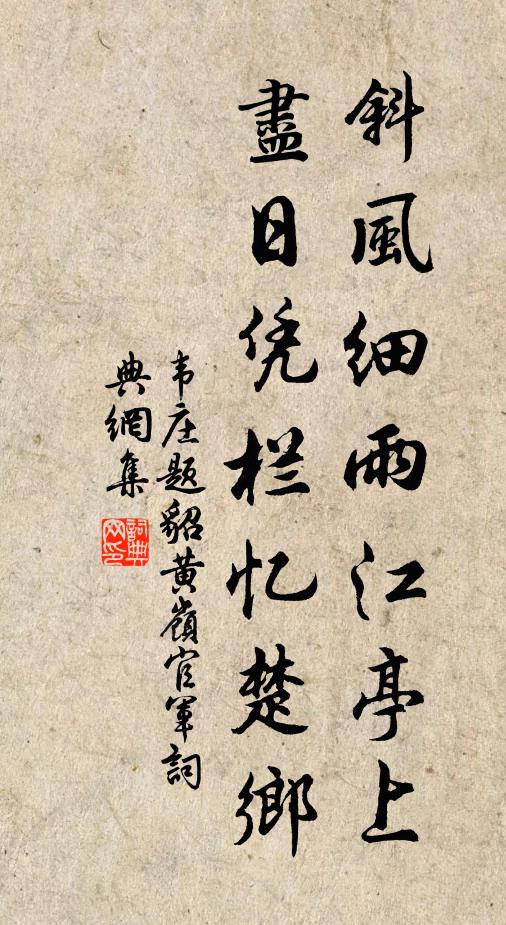 斜風细雨江亭上
盡日凭栏忆楚鄉
韦庄题貂黄嶺官軍詞
典網集
詞典网印